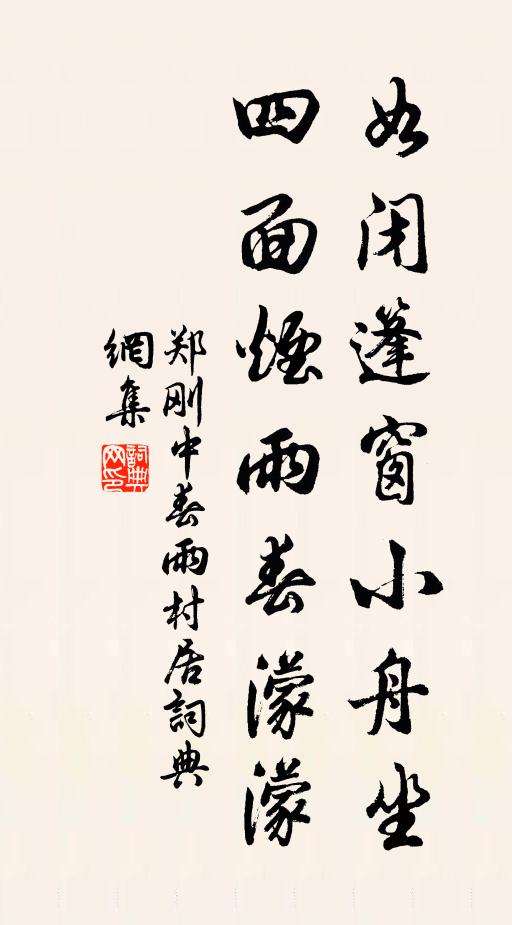 如闭蓬窗小舟坐
四面烟雨春濛濛
郑刚中春雨村居詞典
網集
詞典網印